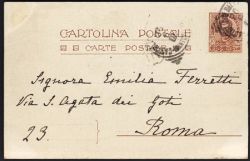 CARTOLINA POSTALE
CARTE POSTALE
Signora Emilia Ferretti
Via S. Agata dei Goti
23.
Roma